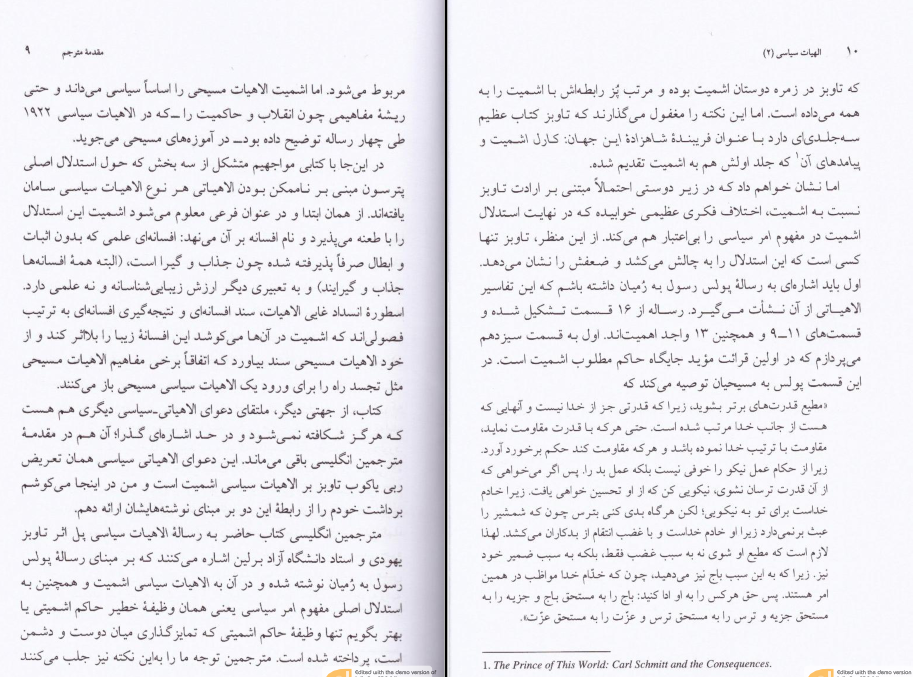 مقدمهٔ مترجم ۹
مربوط می‌شود. اما اشمیت الاهیات مسیحی را اساساً سیاسی می‌داند و حتی
ریشهٔ مفاهیمی چون انقلاب و حاکمیت را ــ‌که در الاهیات سیاسی ۱۹۲۲
طی چهار رساله توضیح داده بود‌ــ در آموزه‌های مسیحی می‌جوید.
در این‌جا با کتابی مواجهیم متشکل از سه بخش که حول استدلال اصلی
پترسون مبنی بر ناممکن بودن الاهیاتی هر نوع الاهیات سیاسی سامان
یافته‌اند. از همان ابتدا و در عنوان فرعی معلوم می‌شود اشمیت این استدلال
را با طعنه می‌پذیرد و نام افسانه بر آن می‌نهد: افسانه‌ای علمی که بدون اثبات
و ابطال صرفاً پذیرفته شده چون جذاب و گیرا است، (البته همهٔ افسانه‌ها
جذاب و گیرایند) و به تعبیری دیگر ارزش زیبایی‌شناسانه و نه علمی دارد.
اسطورهٔ انسداد غایی الاهیات، سند افسانه‌ای و نتیجه‌گیری افسانه‌ای به ترتیب
فصولی‌اند که اشمیت در آن‌ها می‌کوشد این افسانهٔ زیبا را بلااثر کند و از
خود الاهیات مسیحی سند بیاورد که اتفاقاً برخی مفاهیم الاهیات مسیحی
مثل تجسد راه را برای ورود یک الاهیات سیاسی مسیحی باز می‌کنند.
کتاب، از جهتی دیگر، ملتقای دعوای الاهیاتی‌ـ‌سیاسی دیگری هم هست
که هرگز شکافته نمی‌شود و در حد اشاره‌ای گذرا؛ آن هم در مقدمهٔ
مترجمین انگلیسی باقی می‌ماند. این دعوای الاهیاتی سیاسی همان تعریض
ربی یاکوب تاوبز بر الاهیات سیاسی اشمیت است و من در اینجا می‌کوشم
برداشت خودم را از رابطهٔ این دو بر مبنای نوشته‌هایشان ارائه دهم.
مترجمین انگلیسی کتاب حاضر به رسالهٔ الاهیات سیاسی پل اثر تاوبز
یهودی و استاد دانشگاه آزاد برلین اشاره می‌کنند که بر مبنای رسالهٔ پولس
رسول به رُمیان نوشته شده و در آن به الاهیات سیاسی اشمیت و همچنین به
استدلال اصلی مفهوم امر سیاسی یعنی همان وظیفهٔ خطیر حاکم اشمیتی یا
بهتر بگویم تنها وظیفهٔ حاکم اشمیتی که تمایزگذاری میان دوست و دشمن
است، پرداخته شده است. مترجمین توجه ما را به‌این نکته نیز جلب می‌کنند
۱۰ الهیات سیاسی (۲)
که تاوبز در زمره دوستان اشمیت بوده و مرتب پُز رابطه‌اش با اشمیت را به
همه می‌داده است. اما این نکته را مغفول می‌گذارند که تاوبز کتاب عظیم
سه‌جلدی‌ای دارد با عنوان فریبندهٔ شاهزادهٔ این جهان: کارل اشمیت و
پیامدهای آن۱ که جلد اولش هم به اشمیت تقدیم شده.
اما نشان خواهم داد که در زیر دوستی احتمالاً مبتنی بر ارادت تاوبز
نسبت به اشمیت، اختلاف فکری عظیمی خوابیده که در نهایت استدلال
اشمیت در مفهوم امر سیاسی را بی‌اعتبار هم می‌کند. از این منظر، تاوبز تنها
کسی است که این استدلال را به چالش می‌کشد و ضعفش را نشان می‌دهد.
اول باید اشاره‌ای به رسالهٔ پولس رسول به رُمیان داشته باشم که این تفاسیر
الاهیاتی از آن نشأت می‌گیرد. رساله از ۱۶ قسمت تشکیل شده و
قسمت‌های ۱۱ــ۹ و همچنین ۱۳ واجد اهمیت‌اند. اول به قسمت سیزدهم
می‌پردازم که در اولین قرائت مؤید جایگاه حاکم مطلوب اشمیت است. در
این قسمت پولس به مسیحیان توصیه می‌کند که
«مطیع قدرت‌های برتر بشوید، زیرا که قدرتی جز از خدا نیست و آنهایی که
هست از جانب خدا مرتب شده است. حتی هرکه با قدرت مقاومت نماید،
مقاومت با ترتیب خدا نموده باشد و هرکه مقاومت کند حکم برخورد آورد.
زیرا از حکام عمل نیکو را خوفی نیست بلکه عمل بد را. پس اگر می‌خواهی که
از آن قدرت ترسان نشوی، نیکویی کن که از او تحسین خواهی یافت. زیرا خادم
خداست برای تو به نیکویی؛ لکن هرگاه بدی کنی بترس چون که شمشیر را
عبث برنمی‌دارد زیرا او خادم خداست و با غضب انتقام از بدکاران می‌کشد. لهذا
لازم است که مطیع او شوی نه به سبب غضب فقط، بلکه به سبب ضمیر خود
نیز. زیرا که به این سبب باج نیز می‌دهید، چون که خدّام خدا مواظب در همین
امر هستند. پس حق هرکس را به او ادا کنید: باج را به مستحق باج و جزیه را به
مستحق جزیه و ترس را به مستحق ترس و عزّت را به مستحق عزّت».
1. The Prince of This World: Carl Schmitt and the Consequences.
Edited with the demo version of
Edited with the demo version of